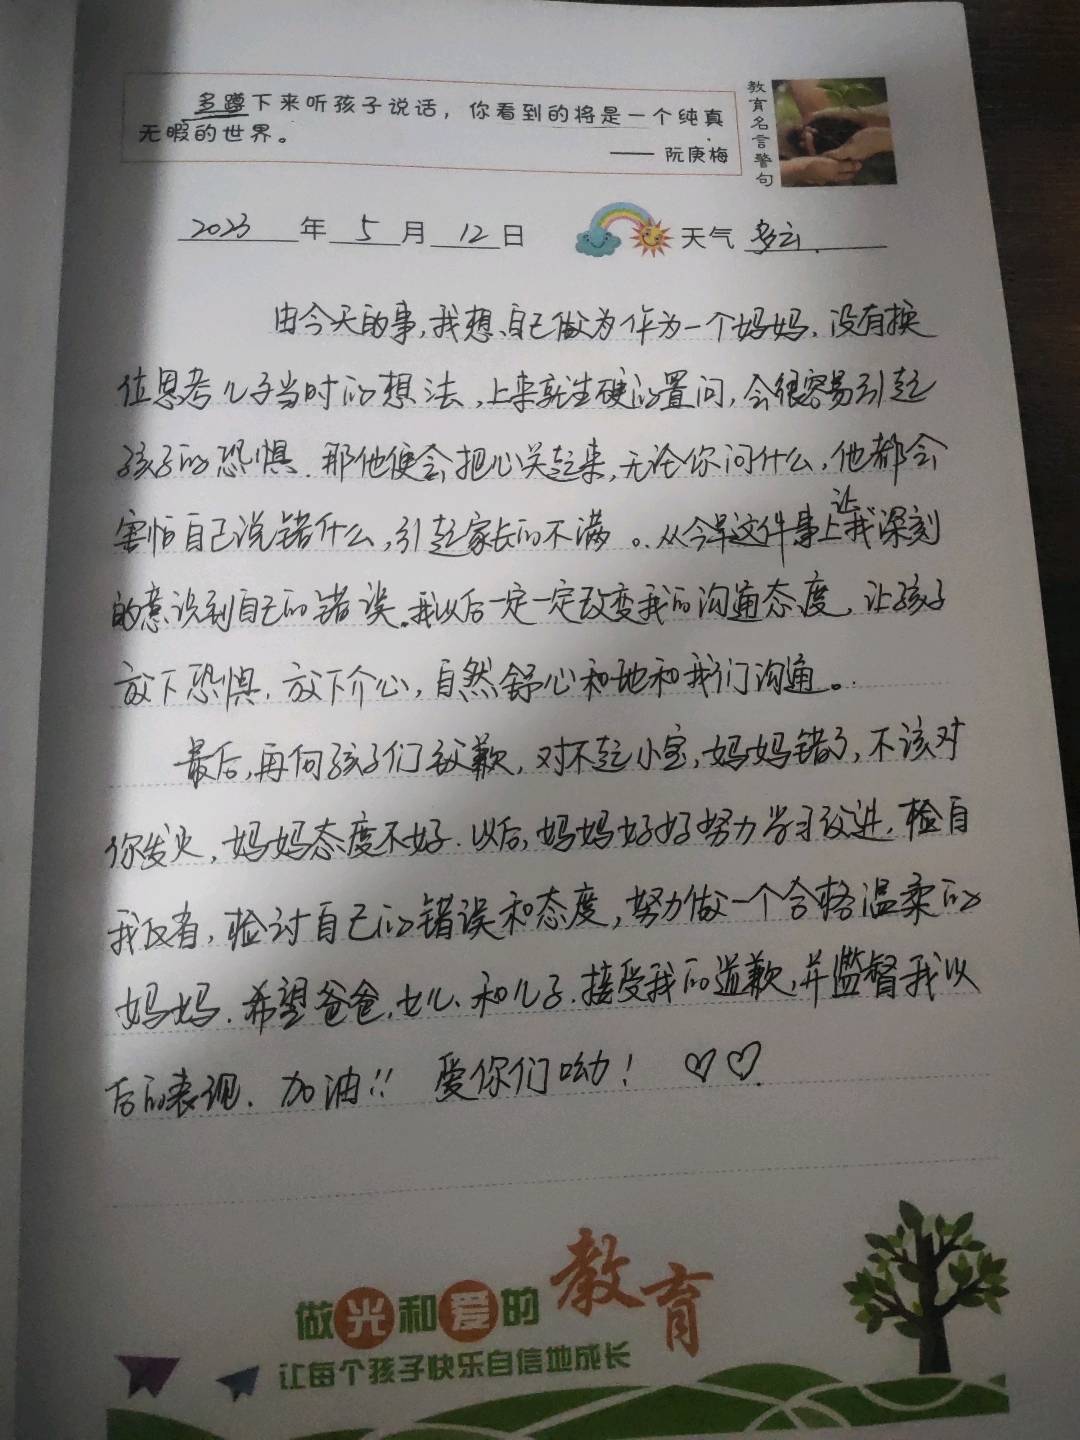 多蹲下来听孩子说话，你看到的将是一个纯真
无暇的世界。
—— 阮庚梅
教育名言警句
2023 年 5 月 12 日 天气 多云.
由今天的事,我想,自己做为作为一个妈妈.没有换
位思考儿子当时的想法,上来就生硬的置问,会很容易引起
孩子的恐惧.那他便会把心关起来,无论你问什么,他都会
害怕自己说错什么,引起家长的不满。.从今早这件事上让我深刻
的意识到自己的错误.我以后一定一定改变我的沟通态度,让孩子
放下恐惧,放下介心,自然舒心和地和我们沟通。.
最后,再向孩子们致歉,对不起小宝,妈妈错了,不该对
你发火,妈妈态度不好.以后,妈妈好好努力学习改进,检自
我反省,检讨自己的错误和态度,努力做一个合格温柔的
妈妈.希望爸爸,女儿、和儿子.接受我的道歉,并监督我以
后的表现.加油!! 爱你们呦! ♡♡.
做光和爱的教育
让每个孩子快乐自信地成长